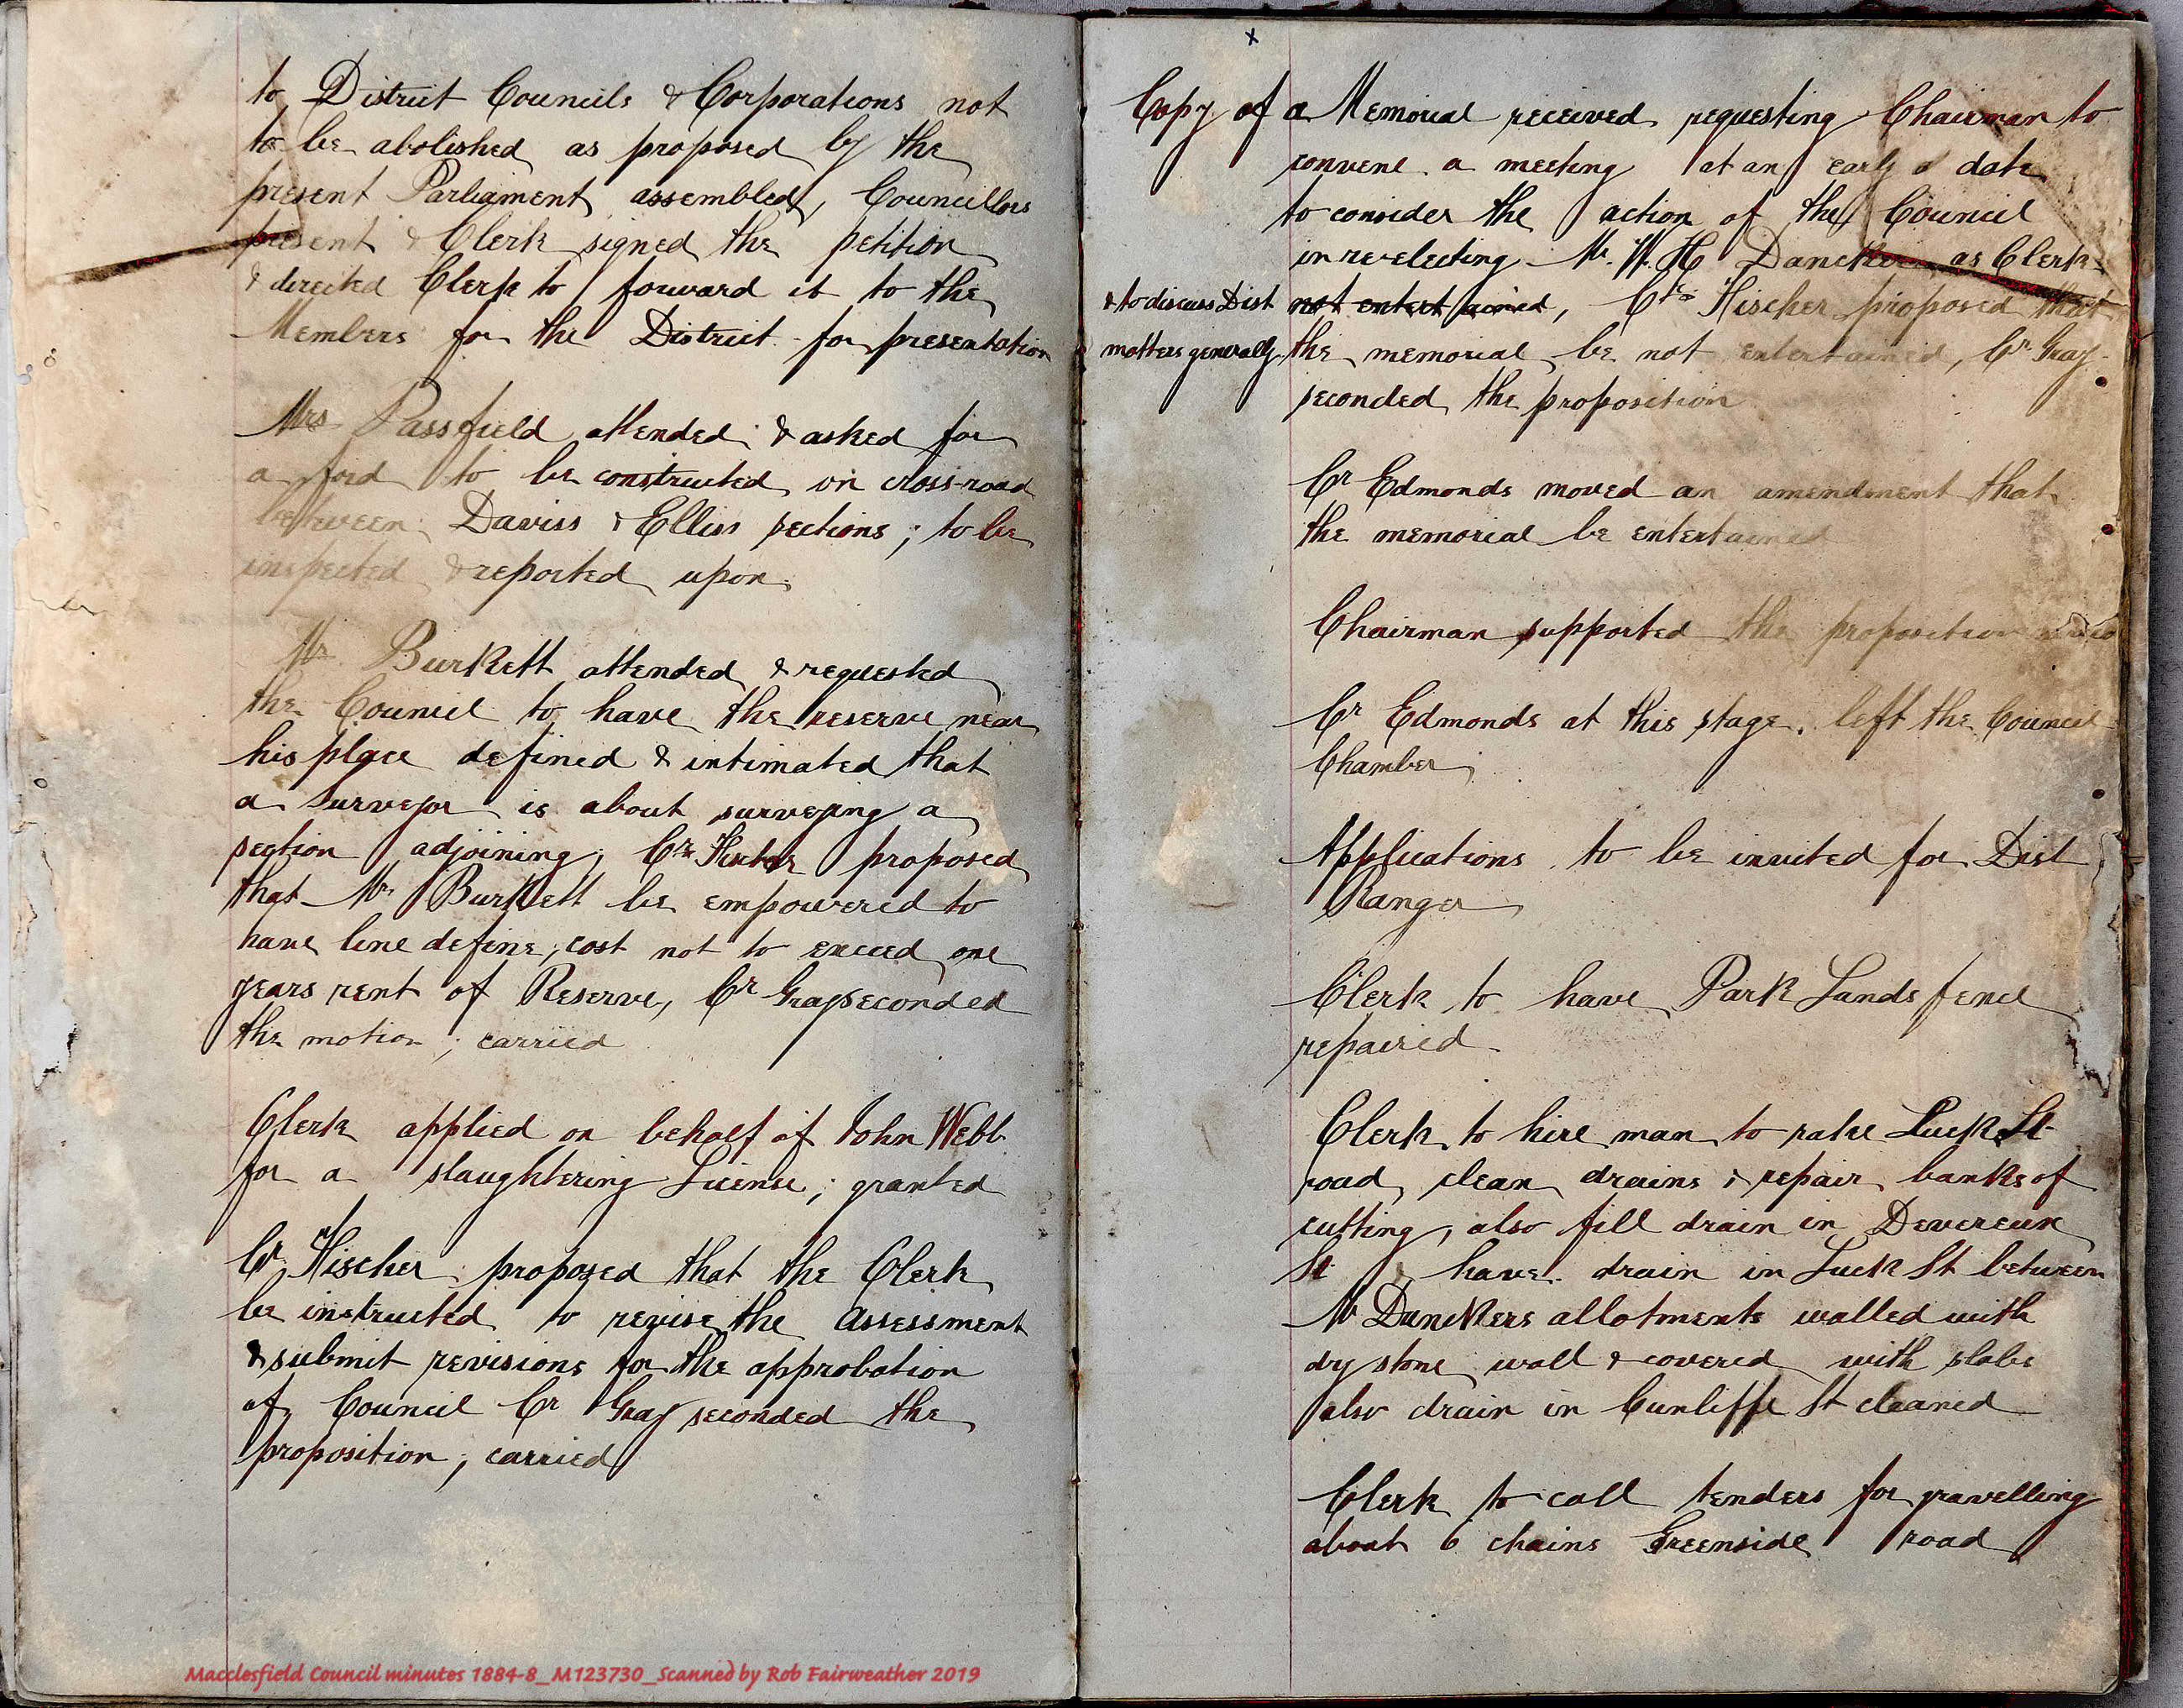 to District Councils & Corporations not
to be abolished as proposed by the
present Parliament assembled, Councillors
present & Clerk signed the petition
& directed Clerk to forward it to the
Members for the District for presentation
Mrs Passfield attended & asked for
a ford to be constructed on cross-road
between Daviss & Elliss sections; to be
inspected & reported upon.
Mr Burkett attended & requested
the Council to have the reserve near
his place defined & intimated that
a Surveyor is about surveying a
section adjoining, Cr proposed
that Mr Burkett be empowered to
have line define, cost not to exceed one
years rent of Reserve, Cr Gray seconded
the motion; carried
Clerk applied on behalf of John Webb
for a slaughtering License; granted
Cr Fischer proposed that the Clerk
be instructed to revise the Assessment
& submit revisions for the approbation
of Council Cr Gray seconded the
proposition; carried
Macclesfield Council minutes 1884-8_M123730_Scanned by Rob Fairweather 2019
x
Copy of a Memorial received requesting Chairman to
convene a meeting at an early date
to consider the action of the Council
in re-electing Mr. W. H Dancker as Clerk
& to discuss Dist not entertained, Cr Fischer proposed that
matters generally the memorial be not entertained, Cr Gray
seconded the proposition
Cr Edmonds moved an amendment that
the memorial be entertained
Chairman supported the proposition
Cr Edmonds at this stage left the Council
Chamber
Applications to be invited for Dist
Ranger
Clerk to have Park Lands fence
repaired
Clerk to hire man to rake Luck St
road, clean drains & repair banks of
cutting, also fill drain in Devereux
St have drain in Luck St between
Mr Danckers allotments walled with
dry stone wall & covered with slabs
also drain in Cunliffe St cleaned
Clerk to call tenders for gravelling
about 6 chains Greenside road